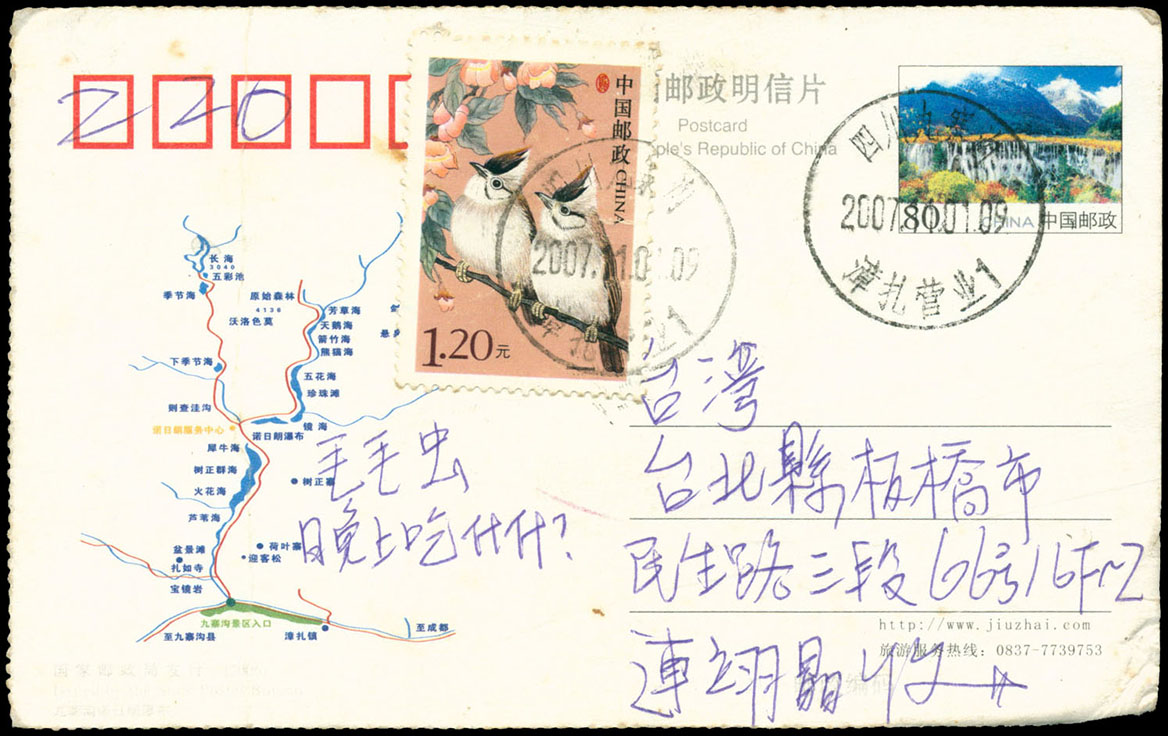 220
邮政明信片
Postcard
ple's Republic of China
中国邮政 CHINA
1.20元
四川九寨
2007.11.01.09
漳扎营业1
2007.11.01.09
80
CHINA 中国邮政
长海
3040
五彩池
季节海
原始森林
4136
沃洛色莫
芳草海
天鹅海
箭竹海
熊猫海
下季节海
五花海
珍珠滩
则查洼沟
诺日朗服务中心
镜海
诺日朗瀑布
犀牛海
树正群海
树正寨
火花海
芦苇海
盆景滩
荷叶寨
迎客松
扎如寺
宝镜岩
九寨沟景区入口
至九寨沟县
漳扎镇
至成都
毛毛虫
晚上吃什什?
台灣
台北縣板橋市
民生路三段66号16F-2
連翊晶 收
http://www.jiuzhai.com
旅游服务热线：0837-7739753
国家邮政局发行